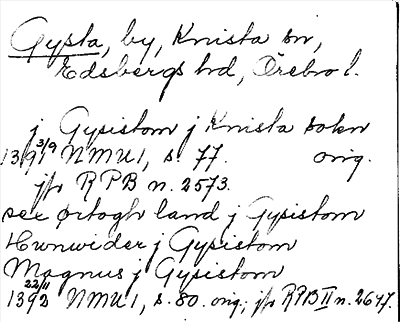 Gysta, by, Knista sn,
Edsbergs hd, Örebro l.
j Gysistom j Knista sokn
1391 3/9 NMU 1, s. 77. orig.
jfr RPB n. 2573.
sex ørtogh land j Gysistom
Hwnwider j Gysistom
Magnus j Gysistom
1392 22/11 NMU 1, s. 80. orig; jfr RPB II n. 2647.